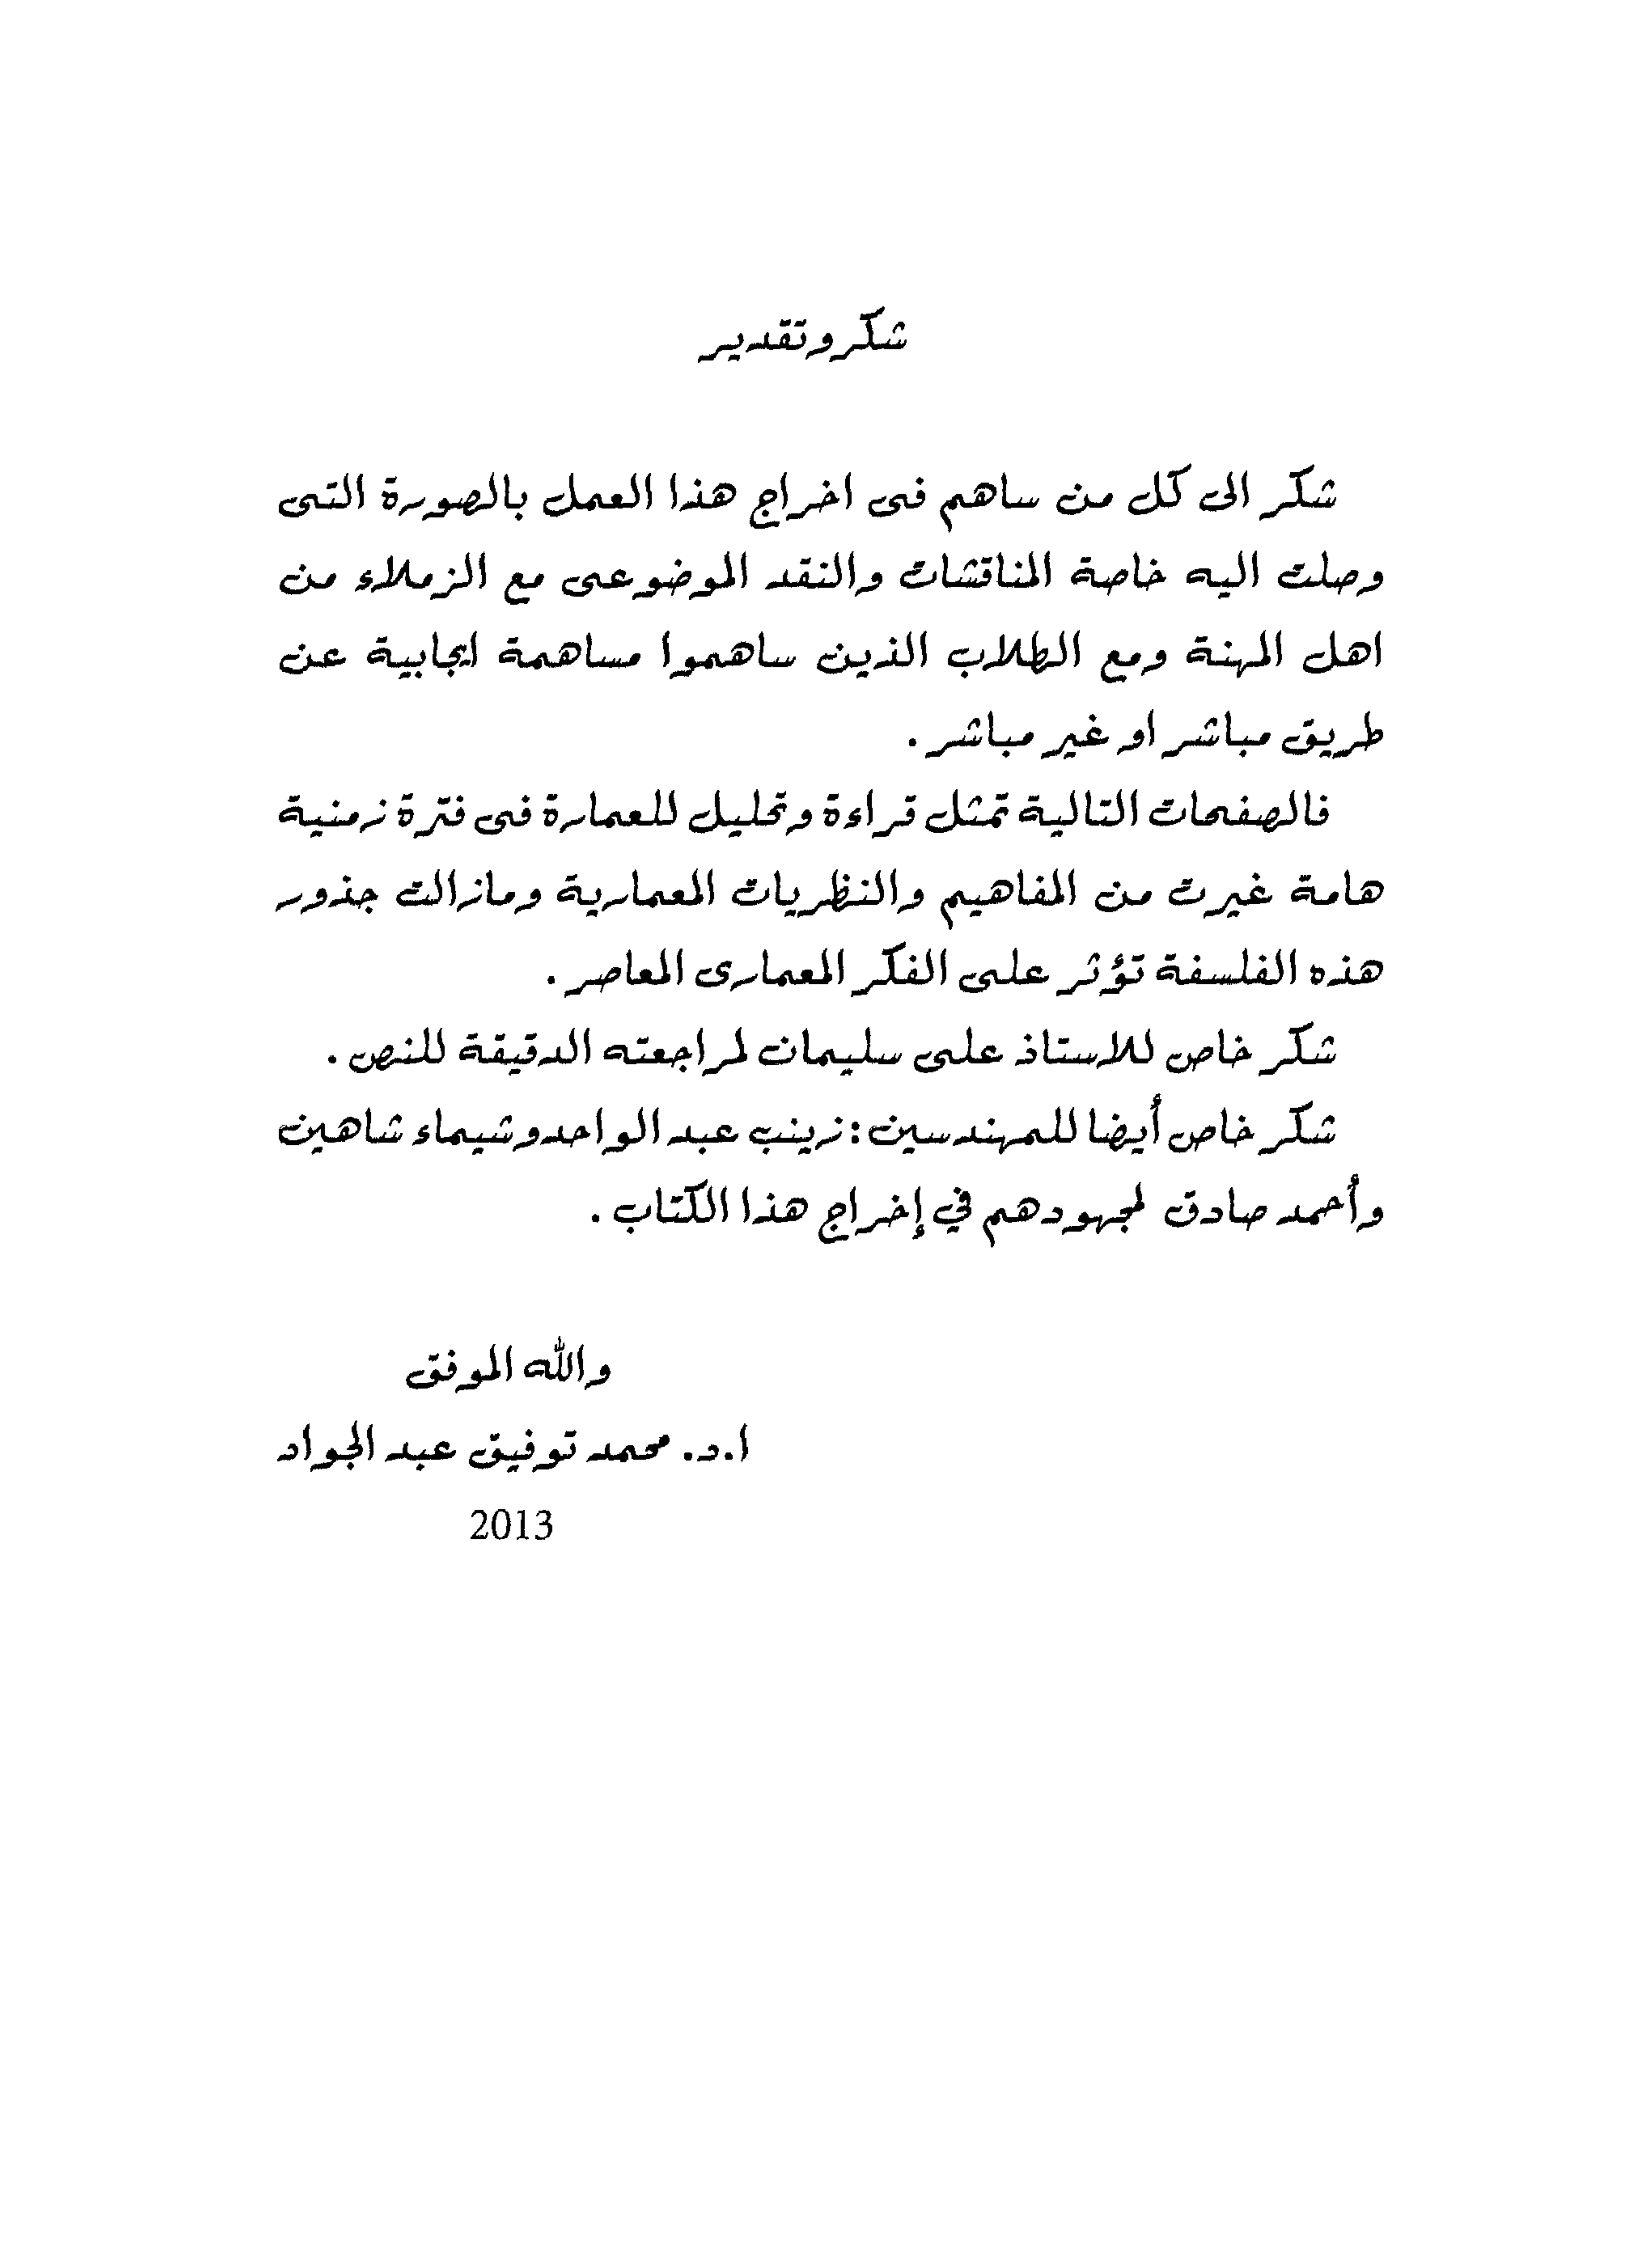 شكر وتقدير
شكر الى كل من ساهم فى اخراج هذا العمل بالصورة التى
وصلت اليه خاصة المناقشات والنقد الموضوعى مع الزملاء من
اهل المهنة ومع الطلاب الذين ساهموا مساهمة ايجابية عن
طريق مباشر او غير مباشر .
فالصفحات التالية تمثل قراءة وتحليل للعمارة فى فترة زمنية
هامة غيرت من المفاهيم والنظريات المعمارية ومازالت جذور
هذه الفلسفة تؤثر على الفكر المعمارى المعاصر .
شكر خاص للاستاذ على سليمان لمراجعته الدقيقة للنص .
شكر خاص أيضا للمهندسين : زينب عبد الواحد وشيماء شاهين
وأحمد صادق لمجهودهم في إخراج هذا الكتاب .
والله الموفق
ا.د. محمد توفيق عبد الجواد
2013